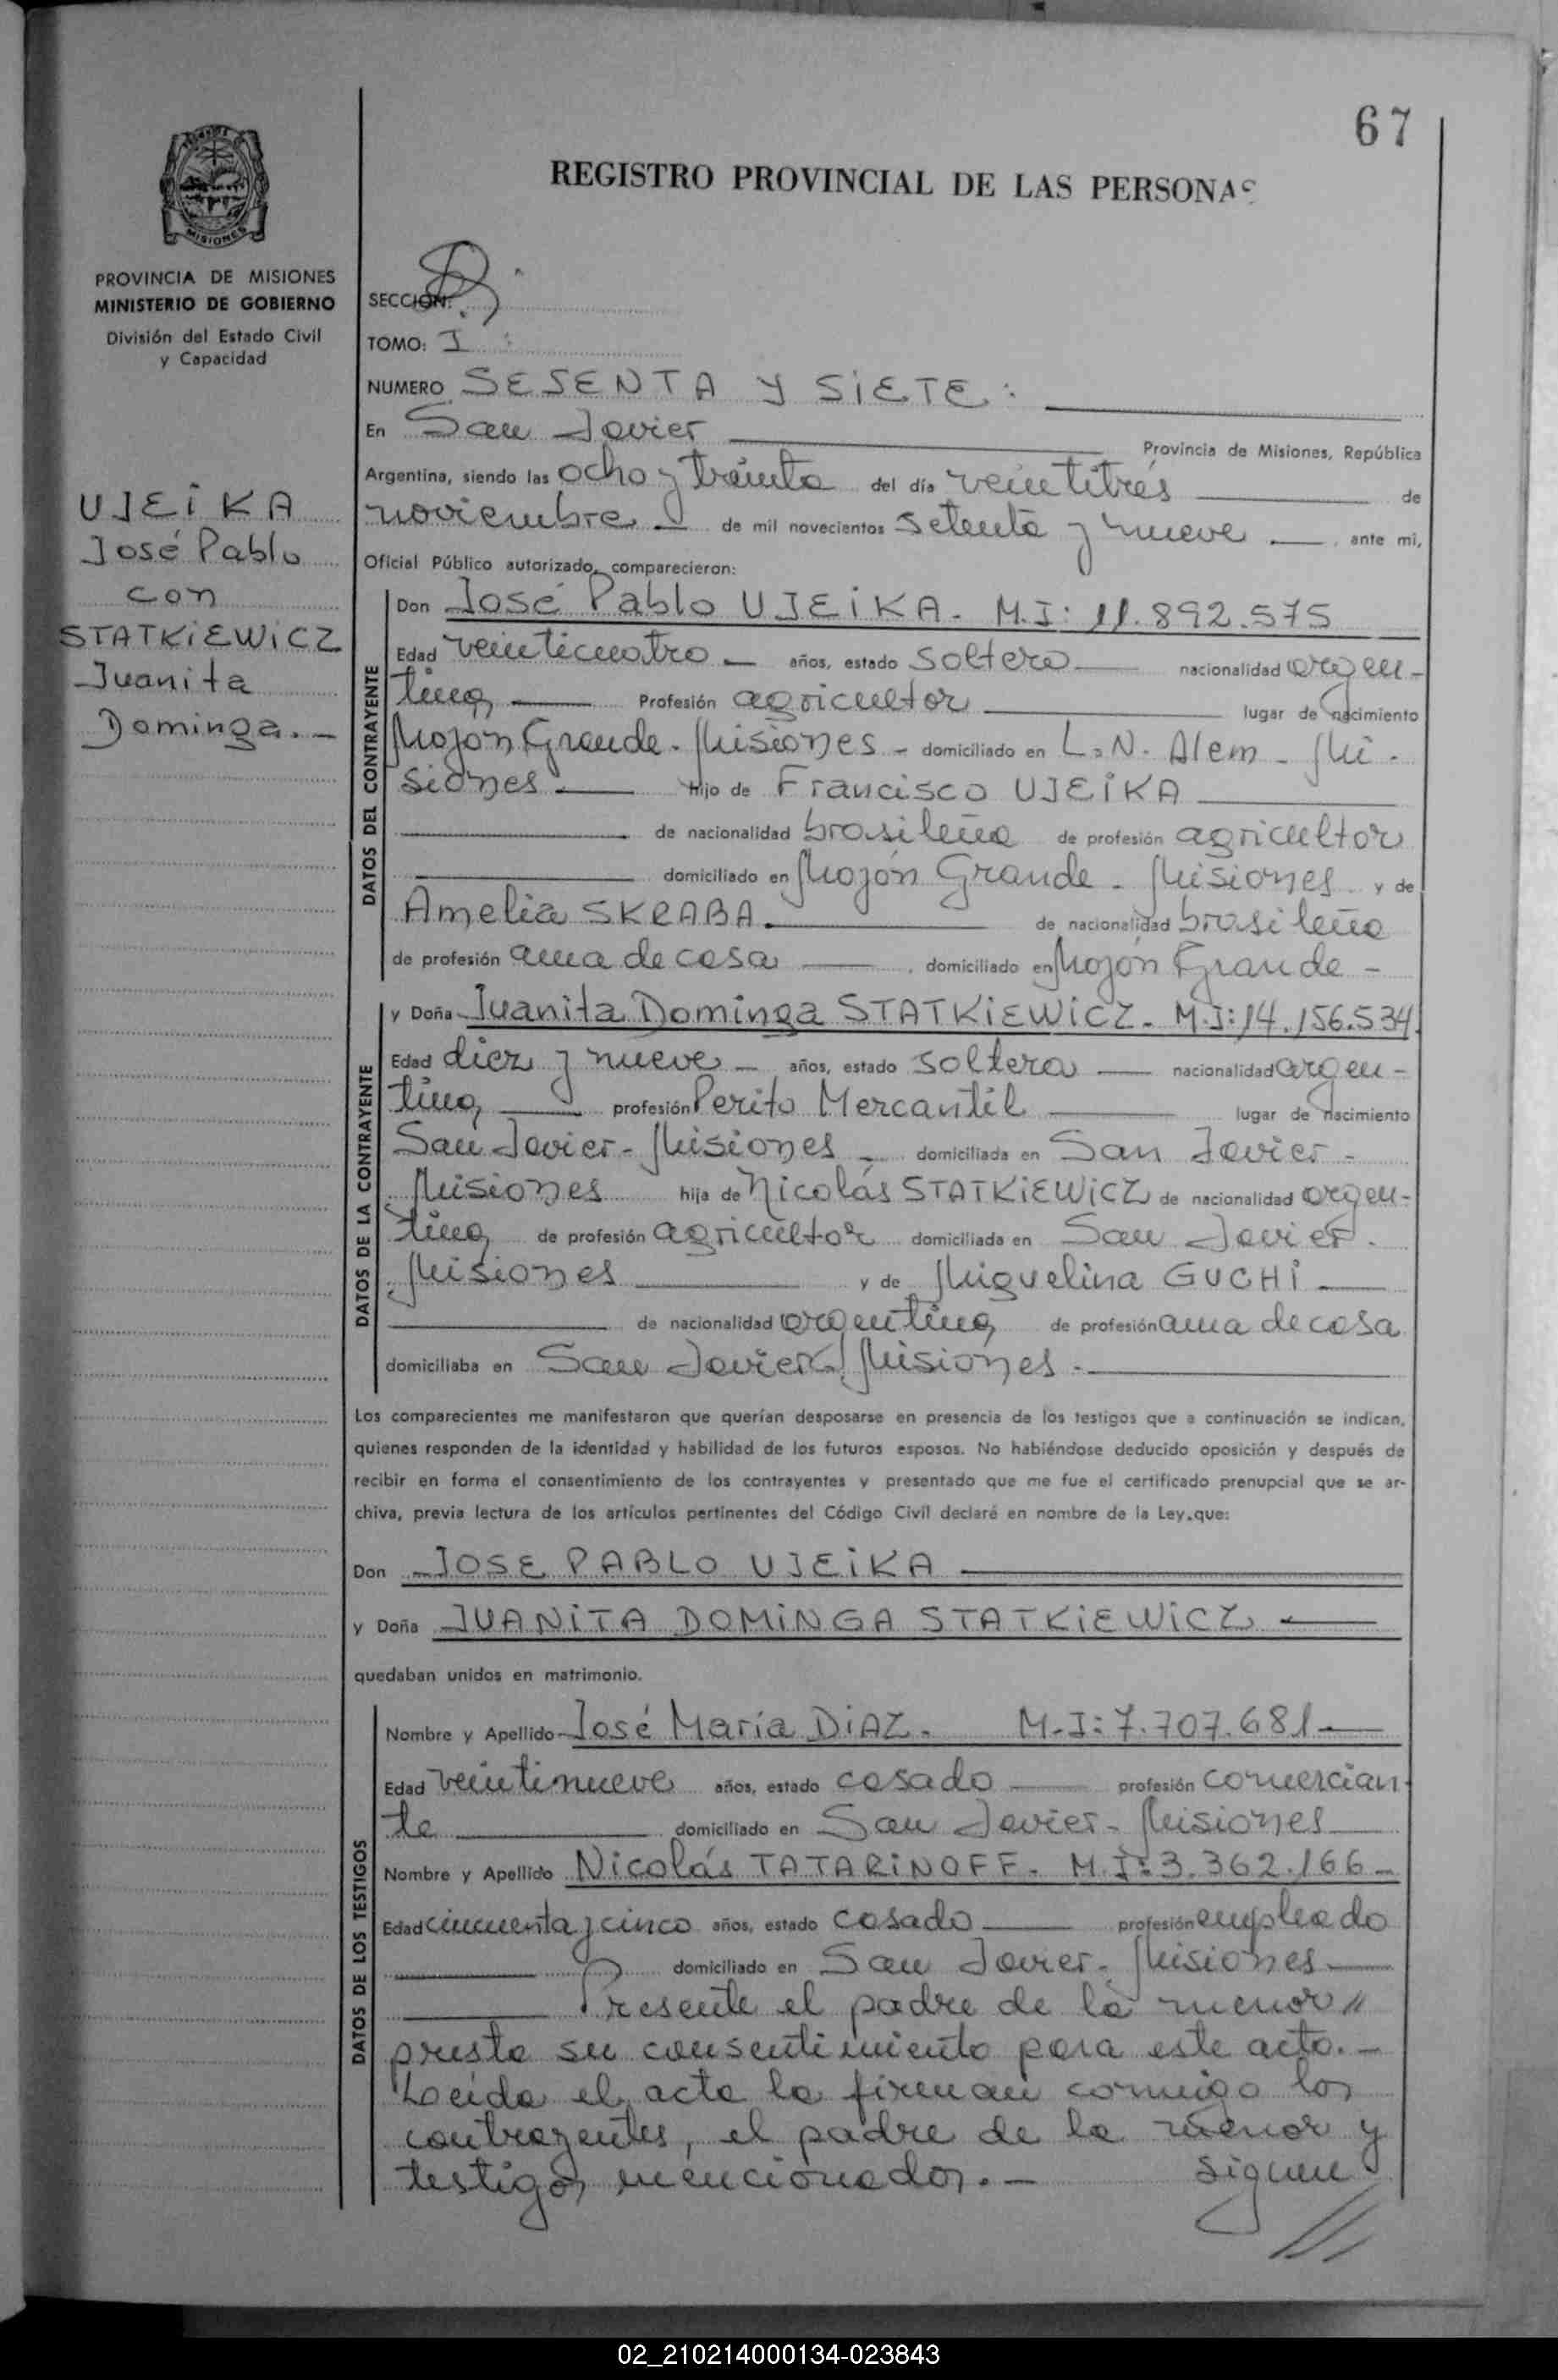 67
REGISTRO PROVINCIAL DE LAS PERSONAS
MISIONES
PROVINCIA DE MISIONES
MINISTERIO DE GOBIERNO
División del Estado Civil
y Capacidad
UJEIKA
José Pablo
con
STATKIEWICZ
Juanita
Dominga.-
SECCION:
TOMO: I
NUMERO SESENTA Y SIETE:
En San Javier Provincia de Misiones, República
Argentina, siendo las ocho y treinta del día veintitrés de
noviembre de mil novecientos setenta y nueve, ante mi,
Oficial Público autorizado, comparecieron:
DATOS DEL CONTRAYENTE
Don José Pablo UJEIKA. M.I: 11.892.575
Edad veinticuatro años, estado soltero nacionalidad argen-
tina, Profesión agricultor lugar de nacimiento
Mojon Grande. Misiones - domiciliado en L.N. Alem - Mi-
siones Hijo de Francisco UJEIKA
de nacionalidad brasileña de profesión agricultor
domiciliado en Mojón Grande - Misiones y de
Amelia SKRABA. de nacionalidad brasileña
de profesión ama de casa, domiciliado en Mojón Grande -
DATOS DE LA CONTRAYENTE
y Doña Juanita Dominga STATKIEWICZ. M.I: 14.156.534.
Edad diez y nueve - años, estado soltera nacionalidad argen-
tina, profesión Perito Mercantil lugar de nacimiento
San Javier - Misiones - domiciliada en San Javier -
Misiones hija de Nicolás STATKIEWICZ de nacionalidad argen-
tina, de profesión agricultor domiciliada en San Javier.
Misiones y de Miguelina GUCHI
de nacionalidad argentina, de profesión ama de casa
domiciliaba en San Javier Misiones.
Los comparecientes me manifestaron que querían desposarse en presencia de los testigos que a continuación se indican,
quienes responden de la identidad y habilidad de los futuros esposos. No habiéndose deducido oposición y después de
recibir en forma el consentimiento de los contrayentes y presentado que me fue el certificado prenupcial que se ar-
chiva, previa lectura de los artículos pertinentes del Código Civil declaré en nombre de la Ley, que:
Don JOSE PABLO UJEIKA
y Doña JUANITA DOMINGA STATKIEWICZ
quedaban unidos en matrimonio.
DATOS DE LOS TESTIGOS
Nombre y Apellido José María DIAZ. M.I: 7.707.681.
Edad veintinueve años, estado casado profesión comercian-
te domiciliado en San Javier - Misiones
Nombre y Apellido Nicolás TATARINOFF. M.I: 3.362.166
Edad cincuenta y cinco años, estado casado profesión empleado
domiciliado en San Javier. Misiones
Presente el padre de la menor //
presta su consentimiento para este acto.-
Leída el acta la firman conmigo los
contrayentes, el padre de la menor y
testigos mencionados.- siguen
02_210214000134-023843